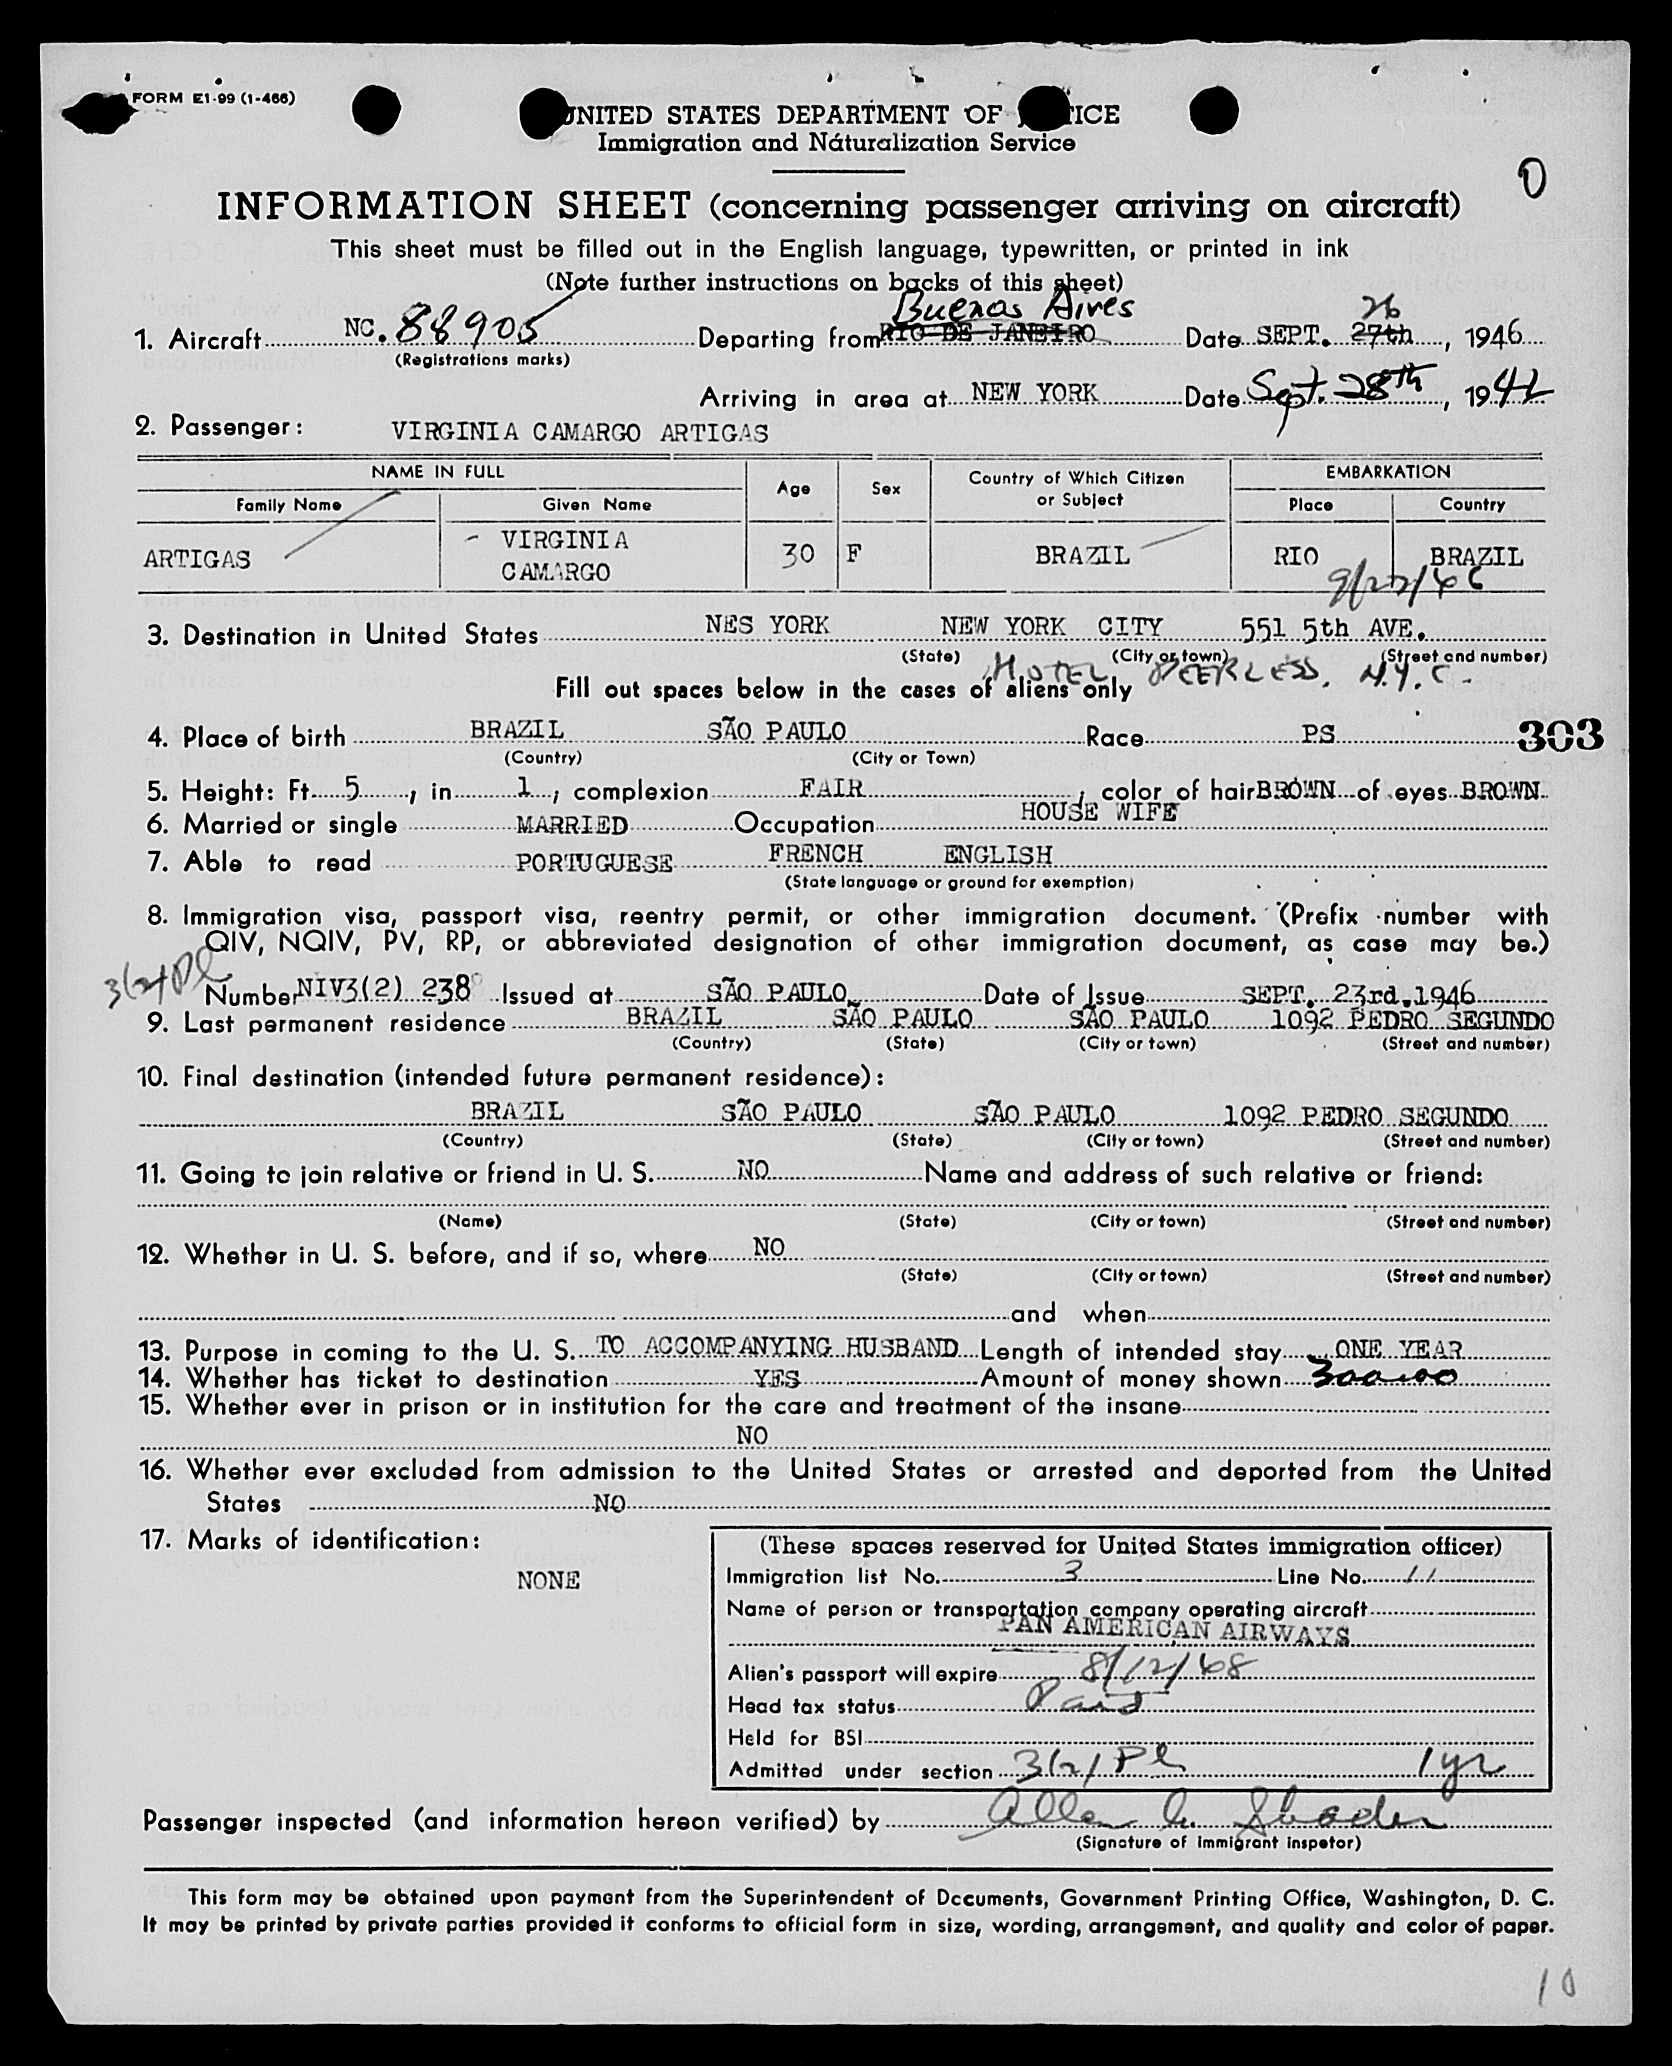 FORM E1-99 (1-466)
UNITED STATES DEPARTMENT OF ICE
Immigration and Naturalization Service
0
INFORMATION SHEET (concerning passenger arriving on aircraft)
This sheet must be filled out in the English language, typewritten, or printed in ink
(Note further instructions on backs of this sheet)
Buenas Aires 26
1. Aircraft NC. 88905 Departing from RIO DE JANEIRO Date SEPT. 27th, 1946
(Registrations marks)
Arriving in area at NEW YORK Date Sept. 28th, 19
2. Passenger: VIRGINIA CAMARGO ARTIGAS
NAME IN FULL Age Sex Country of Which Citizen or Subject EMBARKATION
Family Name Given Name Place Country
ARTIGAS VIRGINIA CAMARGO 30 F BRAZIL RIO BRAZIL
3. Destination in United States NES YORK NEW YORK CITY 551 5th AVE.
(State) (City or town) (Street and number)
HOTEL PEERLESS. N.Y.C.
Fill out spaces below in the cases of aliens only
4. Place of birth BRAZIL SÃO PAULO Race PS 303
(Country) (City or Town)
5. Height: Ft. 5, in 1, complexion FAIR, color of hair BROWN of eyes BROWN
6. Married or single MARRIED Occupation HOUSE WIFE
7. Able to read PORTUGUESE FRENCH ENGLISH
(State language or ground for exemption)
8. Immigration visa, passport visa, reentry permit, or other immigration document. (Prefix number with
QIV, NQIV, PV, RP, or abbreviated designation of other immigration document, as case may be.)
Number NIV3(2) 238 Issued at SÃO PAULO Date of Issue SEPT. 23rd.1946
9. Last permanent residence BRAZIL SÃO PAULO SÃO PAULO 1092 PEDRO SEGUNDO
(Country) (State) (City or town) (Street and number)
10. Final destination (intended future permanent residence):
BRAZIL SÃO PAULO SÃO PAULO 1092 PEDRO SEGUNDO
(Country) (State) (City or town) (Street and number)
11. Going to join relative or friend in U. S. NO Name and address of such relative or friend:
(Name) (State) (City or town) (Street and number)
12. Whether in U. S. before, and if so, where NO
(State) (City or town) (Street and number)
and when
13. Purpose in coming to the U. S. TO ACCOMPANYING HUSBAND Length of intended stay ONE YEAR
14. Whether has ticket to destination YES Amount of money shown 300.00
15. Whether ever in prison or in institution for the care and treatment of the insane
NO
16. Whether ever excluded from admission to the United States or arrested and deported from the United
States NO
17. Marks of identification:
NONE
(These spaces reserved for United States immigration officer)
Immigration list No. 3 Line No. 11
Name of person or transportation company operating aircraft
PAN AMERICAN AIRWAYS
Alien's passport will expire 8/12/48
Head tax status Paid
Held for BSI
Admitted under section 3(2) Pl 1 yr
Passenger inspected (and information hereon verified) by Allen
(Signature of Immigrant inspetor)
This form may be obtained upon payment from the Superintendent of Documents, Government Printing Office, Washington, D. C.
It may be printed by private parties provided it conforms to official form in size, wording, arrangement, and quality and color of paper.
10